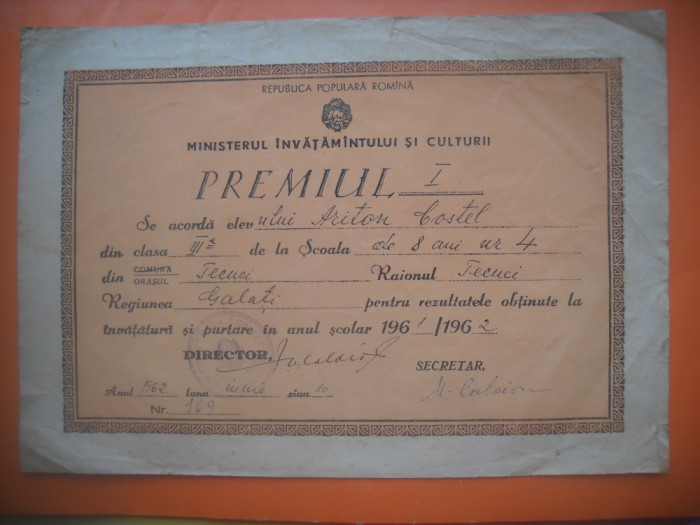 REPUBLICA POPULARĂ ROMÎNĂ
MINISTERUL ÎNVĂȚĂMÎNTULUI ȘI CULTURII
PREMIUL I
Se acordă elevului Ariton Costel
din clasa III a de la Școala de 8 ani nr 4
din COMUNA ORAȘUL Tecuci Raionul Tecuci
Regiunea Galați pentru rezultatele obținute la
învățătură și purtare în anul școlar 1961/1962
DIRECTOR, SECRETAR,
Anul 1962 luna iunie ziua 10
Nr. 169